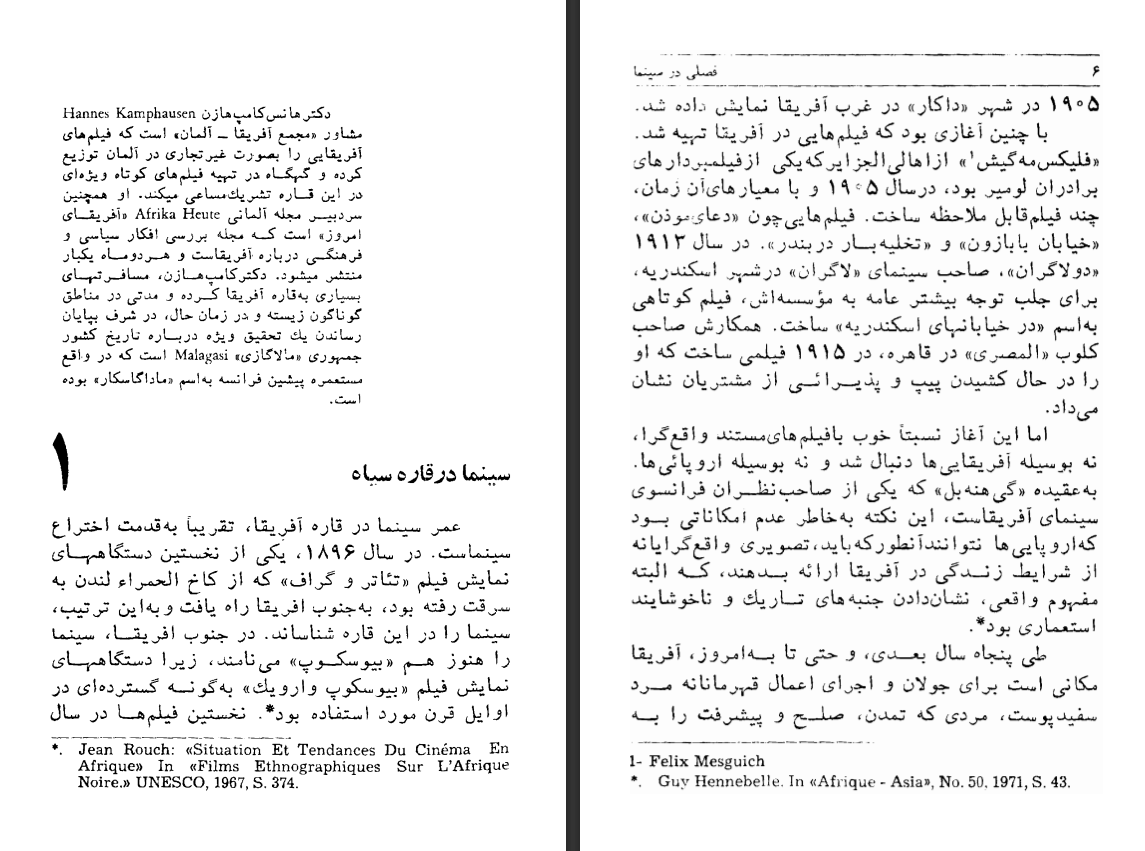 دکتر هانس‌کامپ‌هازن Hannes Kamphausen
مشاور «مجمع آفریقا ــ آلمان» است که فیلم‌های
آفریقایی را بصورت غیرتجاری در آلمان توزیع
کرده و گهگاه در تهیه فیلم‌های کوتاه ویژه‌ای
در این قاره تشریك‌مساعی میکند. او همچنین
سردبیر مجله آلمانی Afrika Heute «آفریقای
امروز» است که مجله بررسی افکار سیاسی و
فرهنگی درباره آفریقاست و هردوماه یکبار
منتشر میشود. دکترکامپ‌هازن، مسافرتهای
بسیاری به‌قاره آفریقا کرده و مدتی در مناطق
گوناگون زیسته و در زمان حال، در شرف بپایان
رساندن یك تحقیق ویژه درباره تاریخ کشور
جمهوری «مالاگازی» Malagasi است که در واقع
مستعمره پیشین فرانسه به‌اسم «ماداگاسکار» بوده
است.
۱
سینما درقاره سیاه
عمر سینما در قاره آفریقا، تقریباً به‌قدمت اختراع
سینماست. در سال ۱۸۹۶، یکی از نخستین دستگاههای
نمایش فیلم «تئاتر و گراف» که از کاخ الحمراء لندن به
سرقت رفته بود، به‌جنوب افریقا راه یافت و به‌این ترتیب،
سینما را در این قاره شناساند. در جنوب افریقا، سینما
را هنوز هم «بیوسکوپ» می‌نامند، زیرا دستگاههای
نمایش فیلم «بیوسکوپ وارویك» به‌گونه گسترده‌ای در
اوایل قرن مورد استفاده بود*. نخستین فیلم‌ها در سال
*. Jean Rouch: «Situation Et Tendances Du Cinéma En
Afrique» In «Films Ethnographiques Sur L'Afrique
Noire.» UNESCO, 1967, S. 374.
۶ فصلی در سینما
۱۹۰۵ در شهر «داکار» در غرب آفریقا نمایش داده شد.
با چنین آغازی بود که فیلم‌هایی در آفریقا تهیه شد.
«فلیکس‌مه‌گیش۱» ازاهالی‌الجزایرکه‌یکی ازفیلمبردارهای
برادران لومیر بود، درسال ۱۹۰۵ و با معیارهای‌آن زمان،
چند فیلم‌قابل ملاحظه ساخت. فیلم‌هایی‌چون «دعای‌موذن»،
«خیابان بابازون» و «تخلیه‌بار دربندر». در سال ۱۹۱۳
«دولاگران»، صاحب سینمای «لاگران» درشهر اسکندریه،
برای جلب توجه بیشتر عامه به مؤسسه‌اش، فیلم کوتاهی
به‌اسم «در خیابانهای اسکندریه» ساخت. همکارش صاحب
کلوب «المصری» در قاهره، در ۱۹۱۵ فیلمی ساخت که او
را در حال کشیدن پیپ و پذیرائی از مشتریان نشان
می‌داد.
اما این آغاز نسبتاً خوب بافیلم‌های‌مستند واقع‌گرا،
نه بوسیله آفریقایی‌ها دنبال شد و نه بوسیله اروپائی‌ها.
به‌عقیده «گی‌هنه‌بل» که یکی از صاحب‌نظران فرانسوی
سینمای آفریقاست، این نکته به‌خاطر عدم امکاناتی بود
که‌اروپایی‌ها نتوانندآنطورکه‌باید،تصویری واقع‌گرایانه
از شرایط زندگی در آفریقا ارائه بدهند، که البته
مفهوم واقعی، نشان‌دادن جنبه‌های تاریك و ناخوشایند
استعماری بود*.
طی پنجاه سال بعدی، و حتی تا به‌امروز، آفریقا
مکانی است برای جولان و اجرای اعمال قهرمانانه مرد
سفیدپوست، مردی که تمدن، صلح و پیشرفت را به
1- Felix Mesguich
*. Guy Hennebelle. In «Afrique - Asia», No. 50, 1971, S. 43.